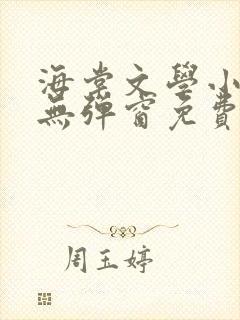 海棠文學小
無彈窗免費
周玉婷